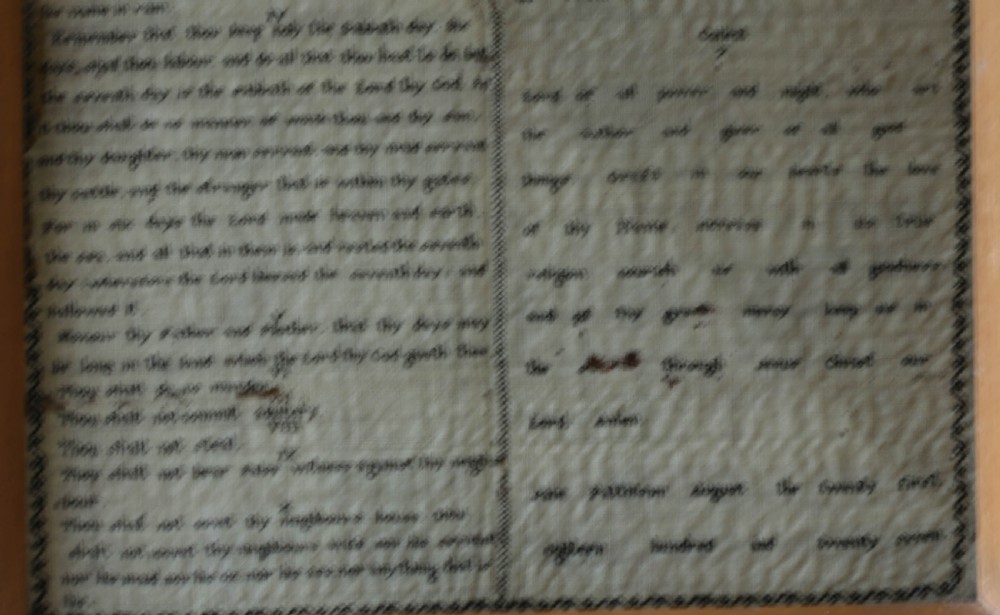 Remember that thou keep holy the Sabbath day. Six
days shalt thou labour and do all that thou hast to do but
the seventh day is the sabbath of the Lord thy God. In
it thou shalt do no manner of work thou and thy son,
and thy daughter, thy man servant and thy maid servant
thy cattle, and the stranger that is within thy gates
For in six days the Lord made heaven and earth,
the sea, and all that in them is, and rested the seventh
day, wherefore the Lord blessed the seventh day, and
hallowed it.
Honour thy Father and Mother, that thy days may
be long in the land which the Lord thy God giveth thee
Thou shalt do no murder
Thou shalt not commit
Thou shalt not steal.
Thou shalt not bear false witness against thy neigh
bour
Thou shalt not covet thy neighbour's house thou
shalt not covet thy neighbour's wife nor his servant
nor his maid nor his ox nor his ass nor anything that is
his.
Collect
7
Lord of all power and might, who art
the author and giver of all good
things Graft in our hearts the love
of thy Name, increase in us true
religion nourish us with all goodness
and of thy great mercy keep us in
the through Jesus Christ our
Lord Amen
August the twenty first,
eighteen hundred and twenty seven